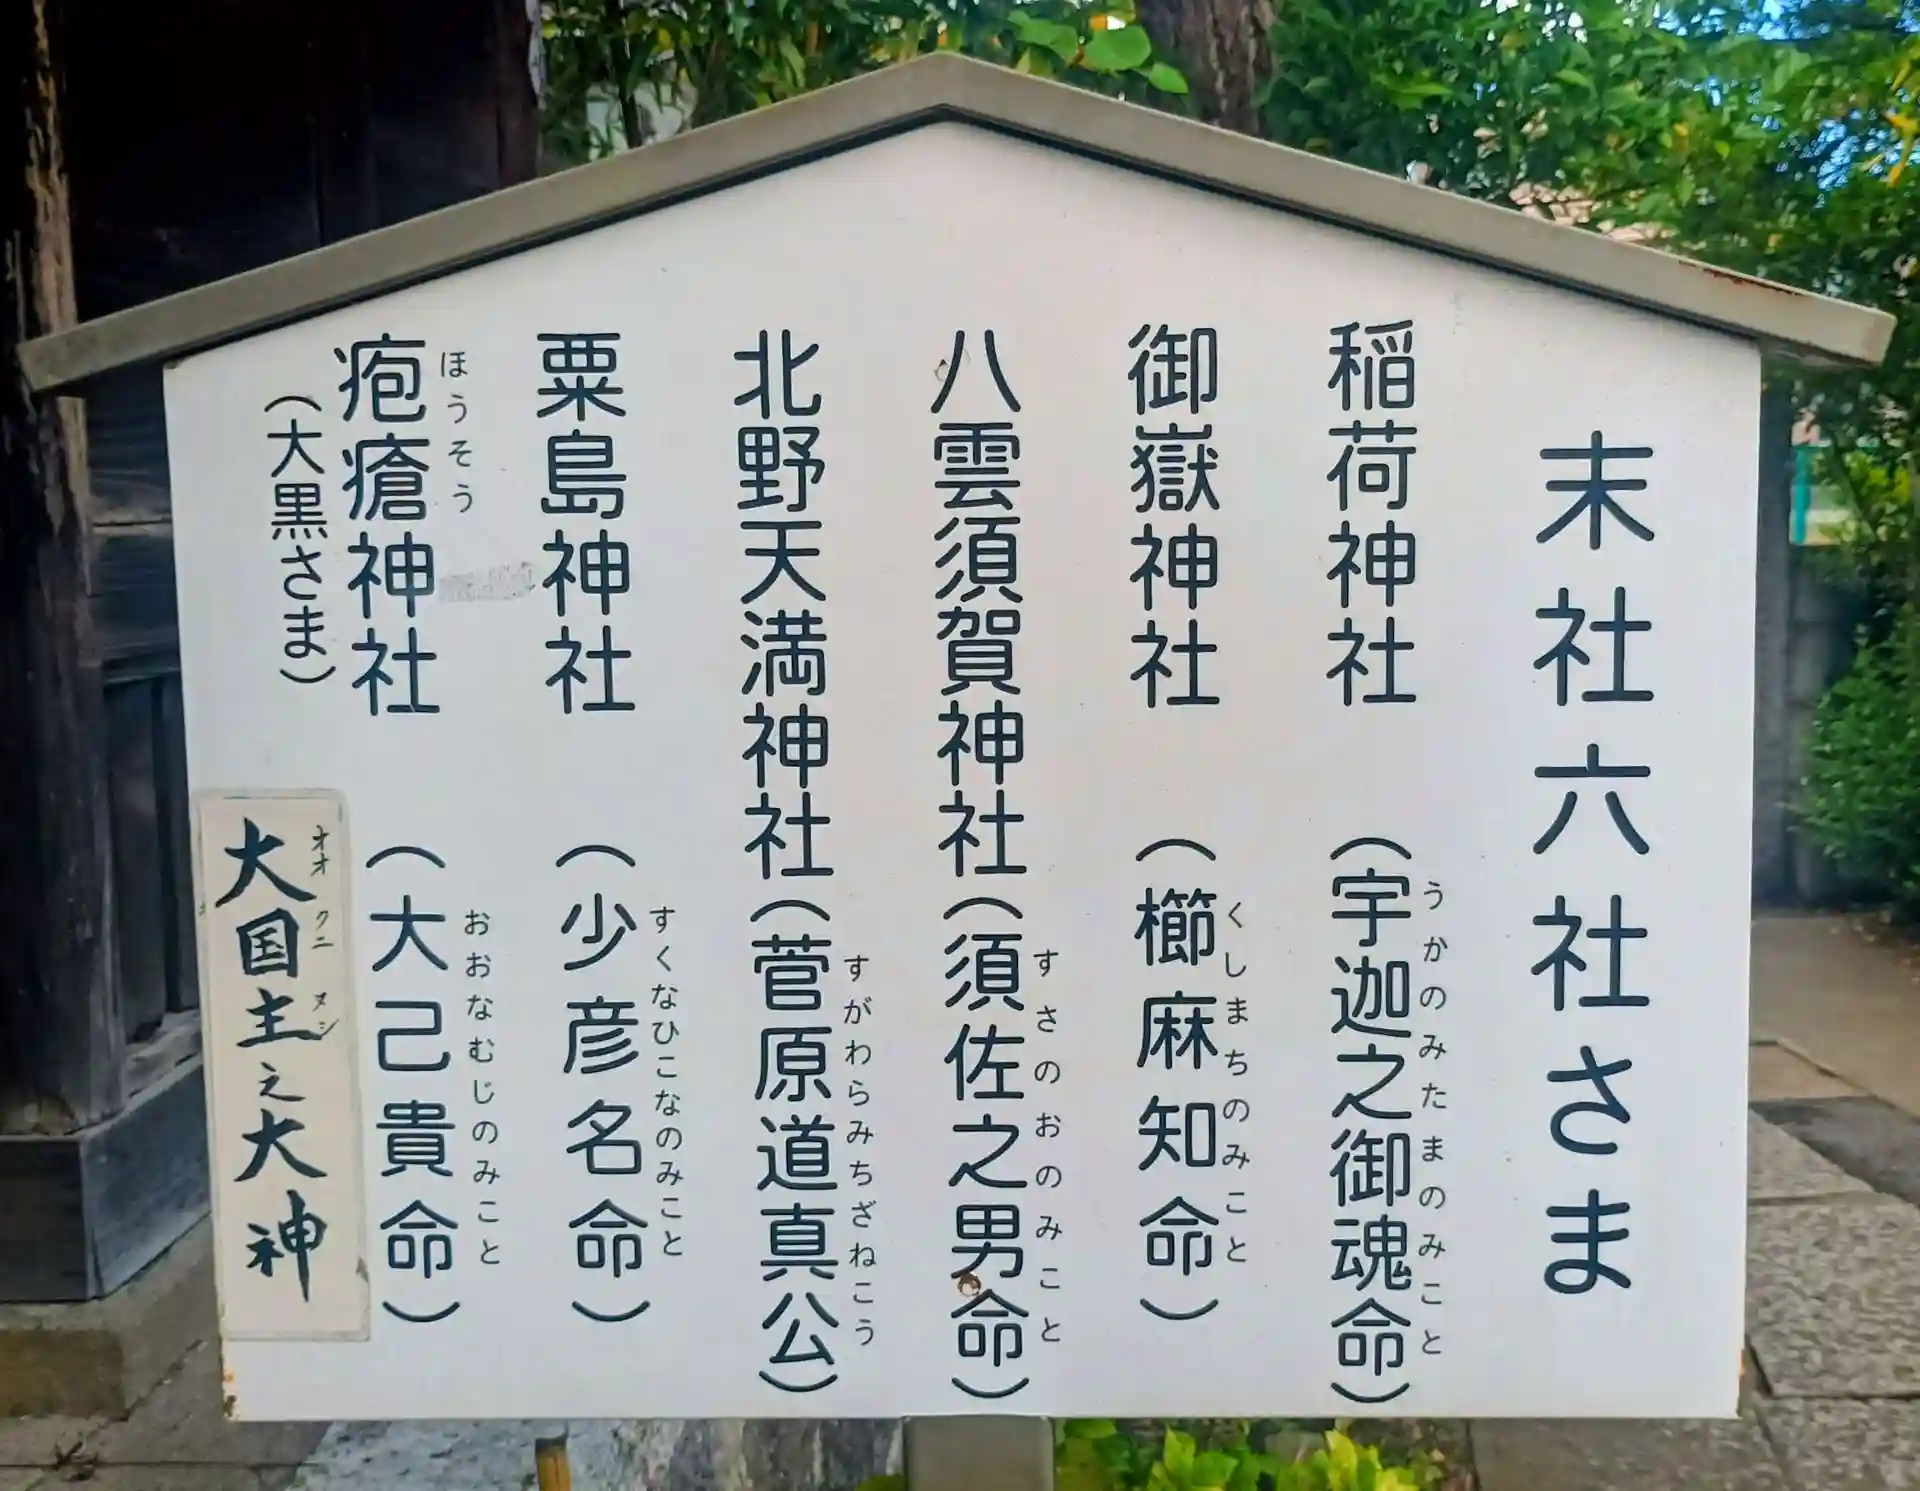 末社六社さま
稲荷神社（宇迦之御魂命）
うかのみたまのみこと
御嶽神社（櫛麻知命）
くしまちのみこと
八雲須賀神社（須佐之男命）
すさのおのみこと
北野天満神社（菅原道真公）
すがわらみちざねこう
粟島神社（少彦名命）
すくなひこなのみこと
疱瘡神社（大己貴命）
ほうそう
おおなむじのみこと
（大黒さま）
大国主之大神
オオクニヌシ